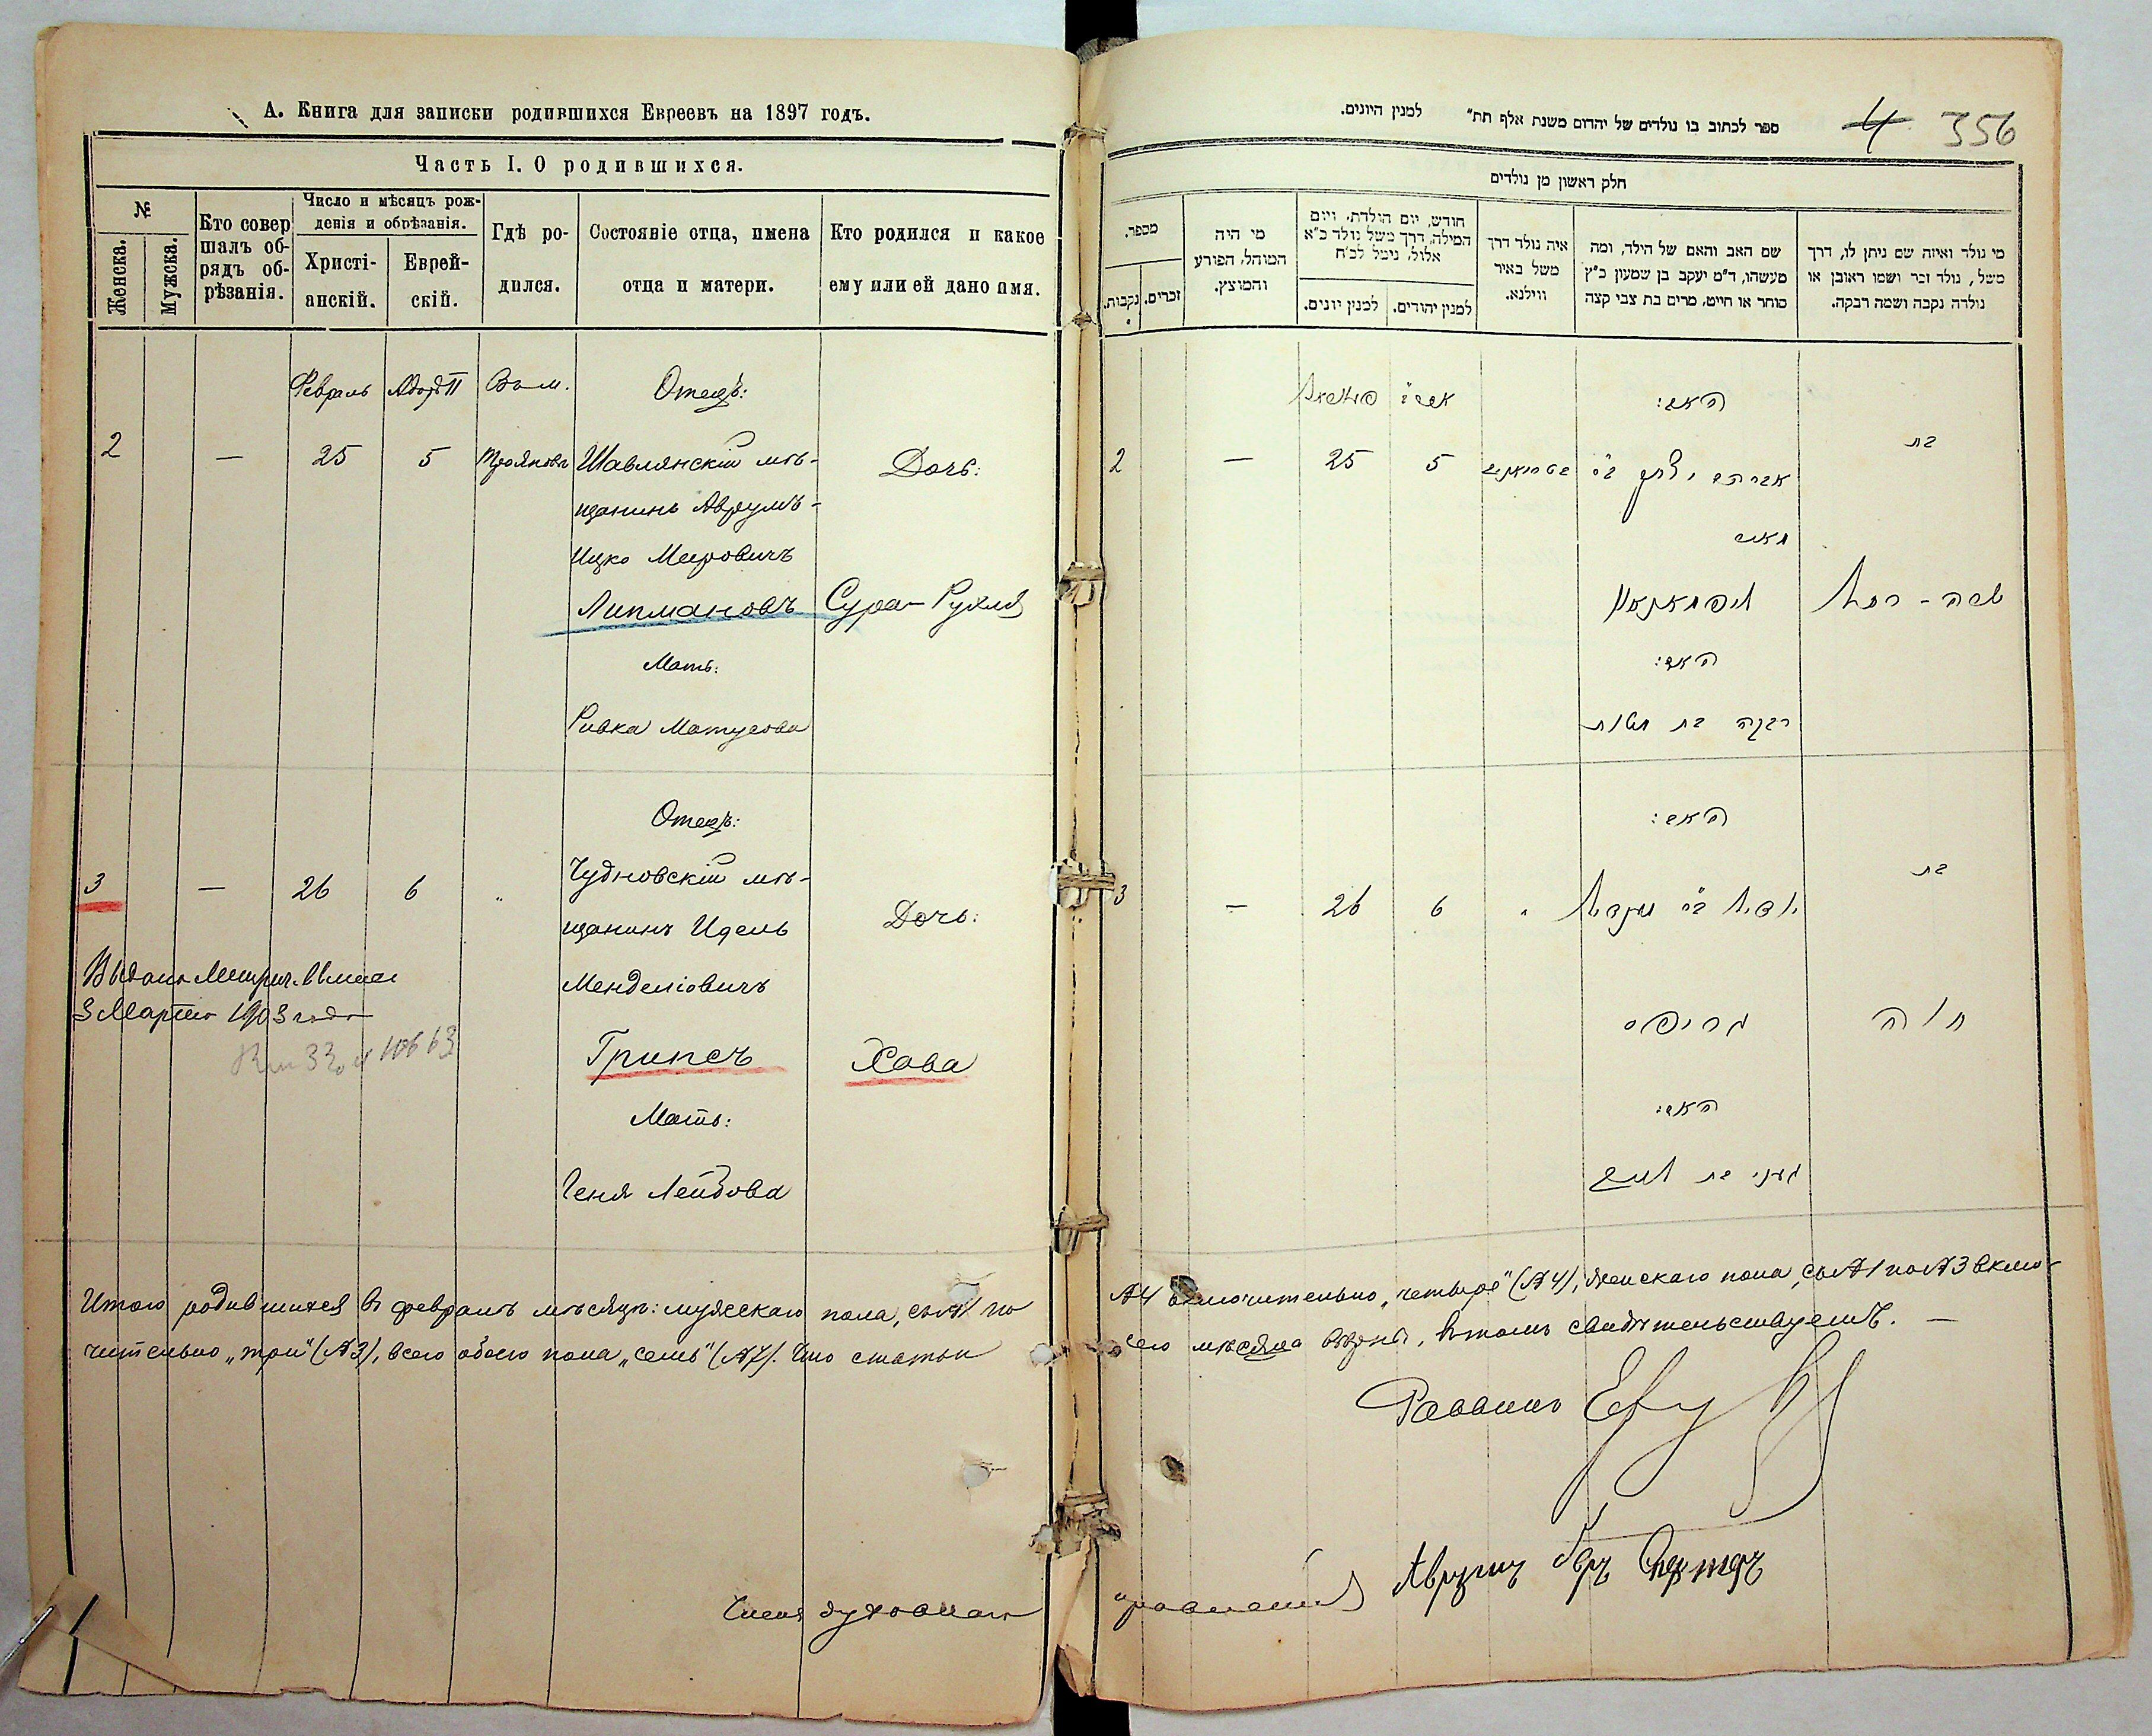 А. Книга для записки родившихся Евреевъ на 1897 годъ.
Часть I. О родившихся.
№
Женска.
Мужска.
Кто совер
шалъ об-
рядъ об-
рѣзанія.
Число и мѣсяцъ рож-
денія и обрѣзанія.
Христі-
анскій.
Еврей-
скій.
Гдѣ ро-
дился.
Состояніе отца, имена
отца и матери.
Кто родился и какое
ему или ей дано имя.
Февраль Адоръ II Въ м. Отецъ:
2 — 25 5 Трояновъ Шавлянскій мѣ- Дочь:
щанинъ Аврумъ-
Ицко Меировичъ
Липмановъ Сура-Рухля
Мать:
Ривка Матусова
Отецъ:
3 — 26 6 " Чудновскій мѣ-
щанинъ Идель Дочь:
Менделіовичъ
3 Марта 1903 года
Грипсъ Хава
Мать:
Геня Лейбова
Итого родившихся въ февралѣ мѣсяцѣ: мужскаго пола, съ №1 по
чительно „три" (№3), всего обоего пола „семь" (№7). Что статьи
Члена духовнаго
ספר לכתוב בו נולדים של יהדום משנת אלף תת" למנין היונים.
4 356
חלק ראשון מן נולדים
מספר.
נקבות.
זכרים.
מי היה
המוהל, הפורע
והמוצץ.
חודש, יום הולדת, ויום
המילה, דרך משל נולד כ"א
אלול, נימל לכ"ח
למנין יונים.
למנין יהודים.
איה נולד דרך
משל באיר
ווילנא.
שם האב והאם של הילד, ומה
מעשהו, ד"מ יעקב בן שמעון כ"ץ
סוחר או חייט, מרים בת צבי קצה
מי נולד ואיזה שם ניתן לו, דרך
משל, נולד זכר ושמו ראובן או
נולדה נקבה ושמה רבקה.
האב:
2 — 25 5 אברהם יצחק ב"ר בת
מאיר
ליפמאנאוו שרה - רחל
האם:
רבקה בת
האב:
3 — 26 6 " יודיל ב"ר מענדיל בת
גריפס חוה
האם:
בת לייב
№4 включительно „четыре" (№4), женскаго пола, съ №1 по №3 вклю-
сего мѣсяца вѣрны, въ томъ свидѣтельствуемъ. —
Раввинъ
правленія